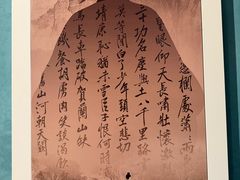 欄處瀟
眼仰天長嘯壯懷激
十功名塵與土八千里路
莫等閒白了少年頭空悲切
靖康恥猶未雪臣子恨何時
長車踏破賀蘭山缺
餐胡虜肉笑談渴飲
山河朝天闕